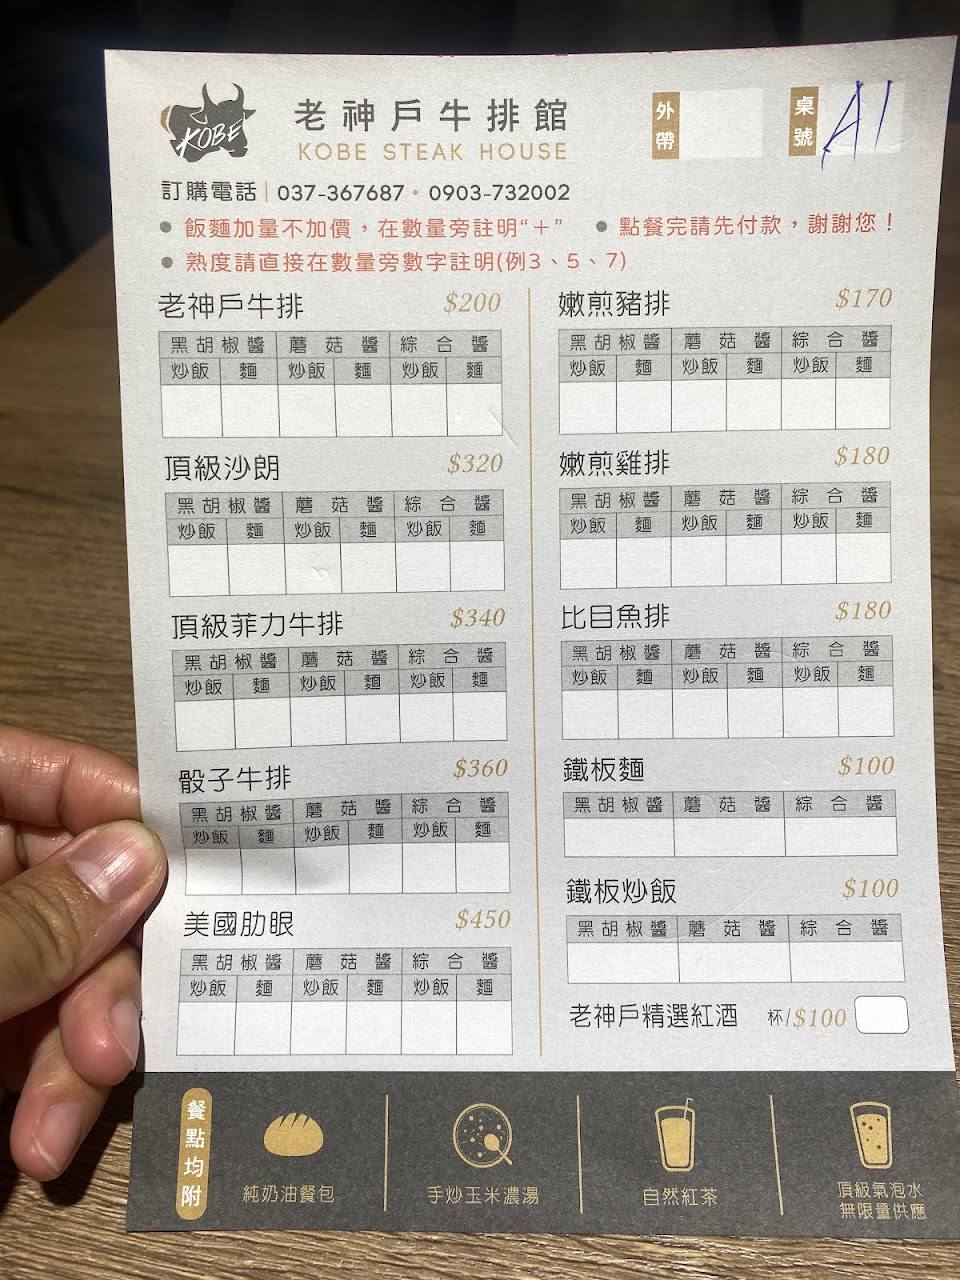 KOBE
老神戶牛排館
KOBE STEAK HOUSE
外帶
桌號
A1
訂購電話 | 037-367687 • 0903-732002
● 飯麵加量不加價，在數量旁註明“＋”
● 點餐完請先付款，謝謝您！
● 熟度請直接在數量旁數字註明(例3、5、7)
老神戶牛排 $200
黑胡椒醬 蘑菇醬 綜合醬
炒飯 麵 炒飯 麵 炒飯 麵
頂級沙朗 $320
黑胡椒醬 蘑菇醬 綜合醬
炒飯 麵 炒飯 麵 炒飯 麵
頂級菲力牛排 $340
黑胡椒醬 蘑菇醬 綜合醬
炒飯 麵 炒飯 麵 炒飯 麵
骰子牛排 $360
黑胡椒醬 蘑菇醬 綜合醬
炒飯 麵 炒飯 麵 炒飯 麵
美國肋眼 $450
黑胡椒醬 蘑菇醬 綜合醬
炒飯 麵 炒飯 麵 炒飯 麵
嫩煎豬排 $170
黑胡椒醬 蘑菇醬 綜合醬
炒飯 麵 炒飯 麵 炒飯 麵
嫩煎雞排 $180
黑胡椒醬 蘑菇醬 綜合醬
炒飯 麵 炒飯 麵 炒飯 麵
比目魚排 $180
黑胡椒醬 蘑菇醬 綜合醬
炒飯 麵 炒飯 麵 炒飯 麵
鐵板麵 $100
黑胡椒醬 蘑菇醬 綜合醬
鐵板炒飯 $100
黑胡椒醬 蘑菇醬 綜合醬
老神戶精選紅酒 杯/$100
餐點均附
純奶油餐包
手炒玉米濃湯
自然紅茶
頂級氣泡水
無限量供應